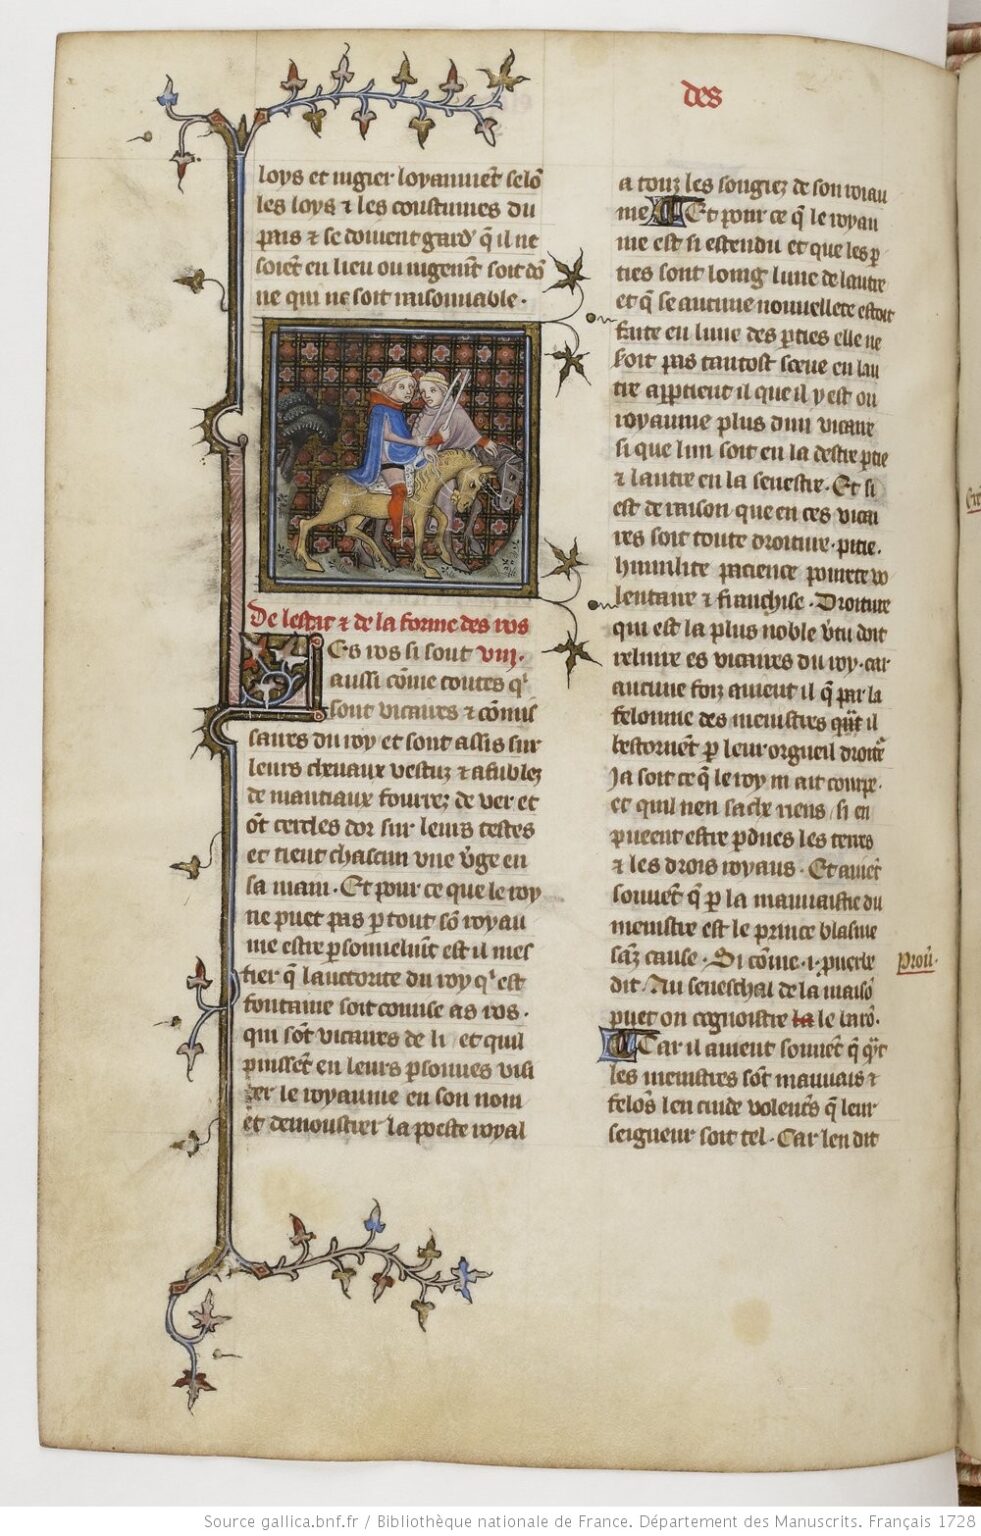 des
loys et iugier loyaumēt selō
les loys ⁊ les coustumes du
pais ⁊ se doiuent gard' q̄ il ne
soiēt en lieu ou iugemt̄ soit dō
ne qui ne soit raisonnable.
De lestat ⁊ de la forme des ros
Les ros si sont viij.
aussi cōme toutes qͥ
sont vicaires ⁊ cōmis
saires du roy et sont assis sur
leurs cheuaux vestuz ⁊ afublez
de mantiaux fourrez de ver et
ōt cercles dor sur leurs testes
et tient chascun vne v̄ge en
sa main. Et pour ce que le roy
ne puet pas ꝑtout sō royau
me estre ꝑsonnelmt̄ est il mes
tier q̄ lauctorite du roy qͥ est
fontaine soit commise as ros.
qui sōt vicaires de li et quil
puissēt en leurs ꝑsonnes visi
ter le royaume en son nom
et demoustrer la poeste royal
a touz les sougiez de son roiau
me Et pour ce q̄ le royau
me est si estendu et que les ꝑ
ties sont loing lune de lautre
et q̄ se aucune nouuellete estoit
faite en lune des ꝑties elle ne
soit pas tantost sceue en lau
tre aꝑꝑtient il que il y est ou
royaume plus dun vicaire
si que lun soit en la destre ꝑtie
⁊ lautre en la senestre. Et si
est de raison que en ces vicai
res soit toute droiture. pitie.
humilite pacience pourete vo
lentaire ⁊ franchise. Droiture
qui est la plus noble v̄tu doit
reluire es vicaires du roy. car
aucune foiz auient il q̄ par la
felonnie des menistres qn̄t il
bestornēt ꝑ leur orgueil droitͬe
Ja soit ce q̄ le roy ni ait courpe.
et quil nen sache riens si en
pueent estre ꝑdues les terres
⁊ les drois royaus. Et auiēt
souuēt q̄ ꝑ la mauuaistie du
menistre est le prince blasme
sāz cause. Si cōme .i. puerbe
prou̅.
dit. Au seneschal de la maisō
puet on cognoistre la le barō.
Car il auient souuēt q̄ qn̄t
les menistres sōt mauuais ⁊
felōs len cuide volent̄s q̄ leur
seigneur soit tel. Car len dit
Source gallica.bnf.fr / Bibliothèque nationale de France. Département des Manuscrits. Français 1728